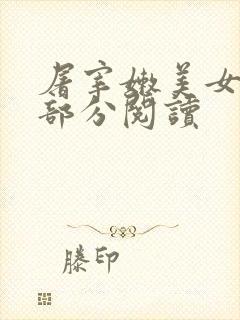 屠宰嫩美女
部分閱讀
滕印